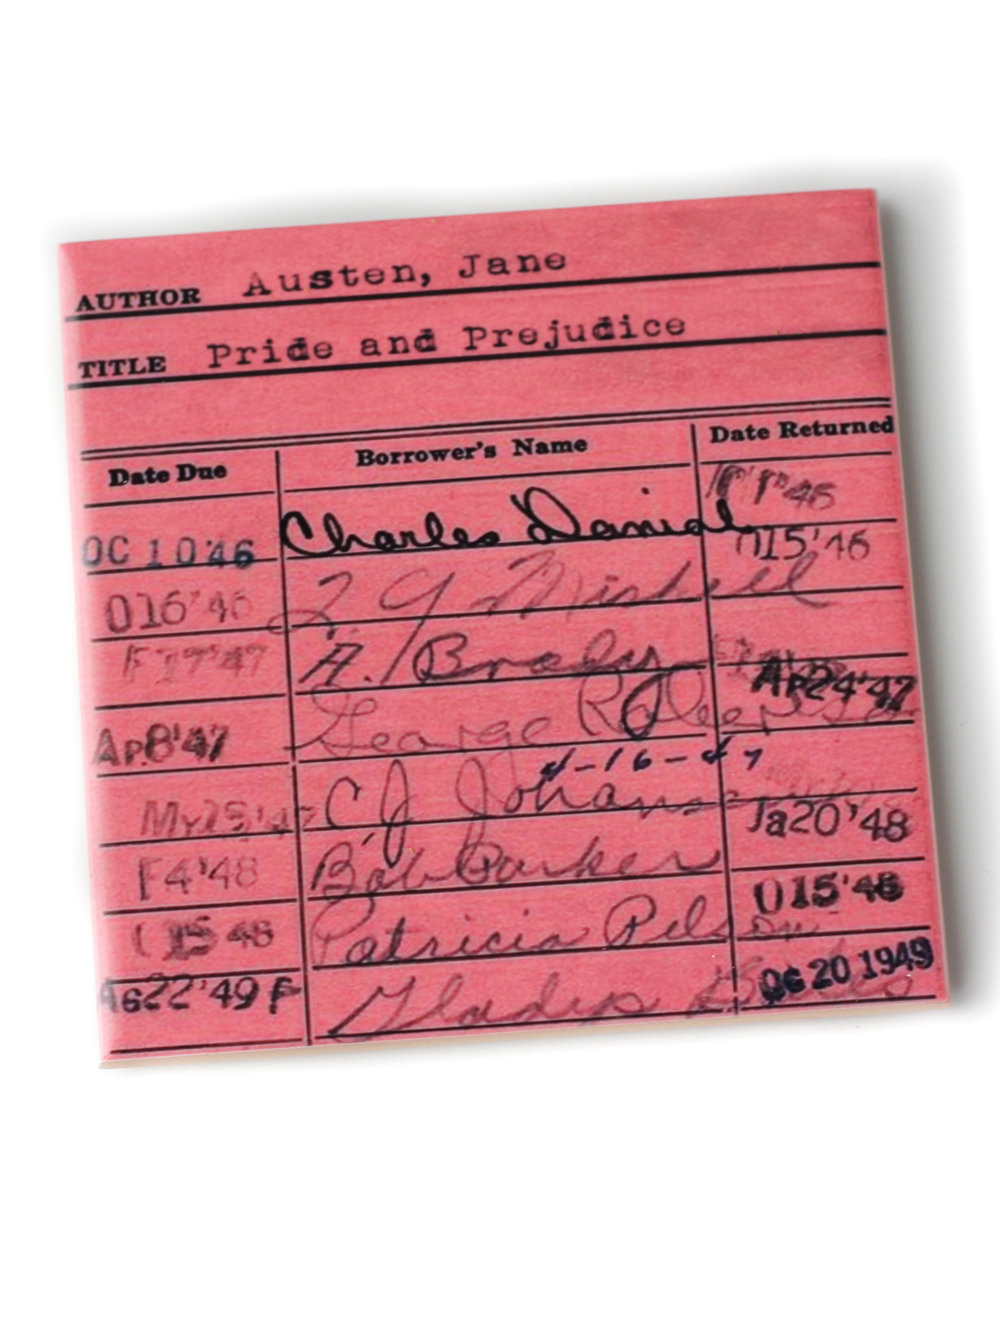 AUTHOR Austen, Jane
TITLE Pride and Prejudice
Date Due Borrower's Name Date Returned
OC 10'46 Charles Danial
O16'46 O15'46
F 17'47 A. Braly
Ap 8'47 George Ap24'47
4-16-47
My 15'47 C J
Ja20'48
F4'48 Bob Barker
15 48 Patricia O15'48
Ag22'49 F Gladys 20 1949